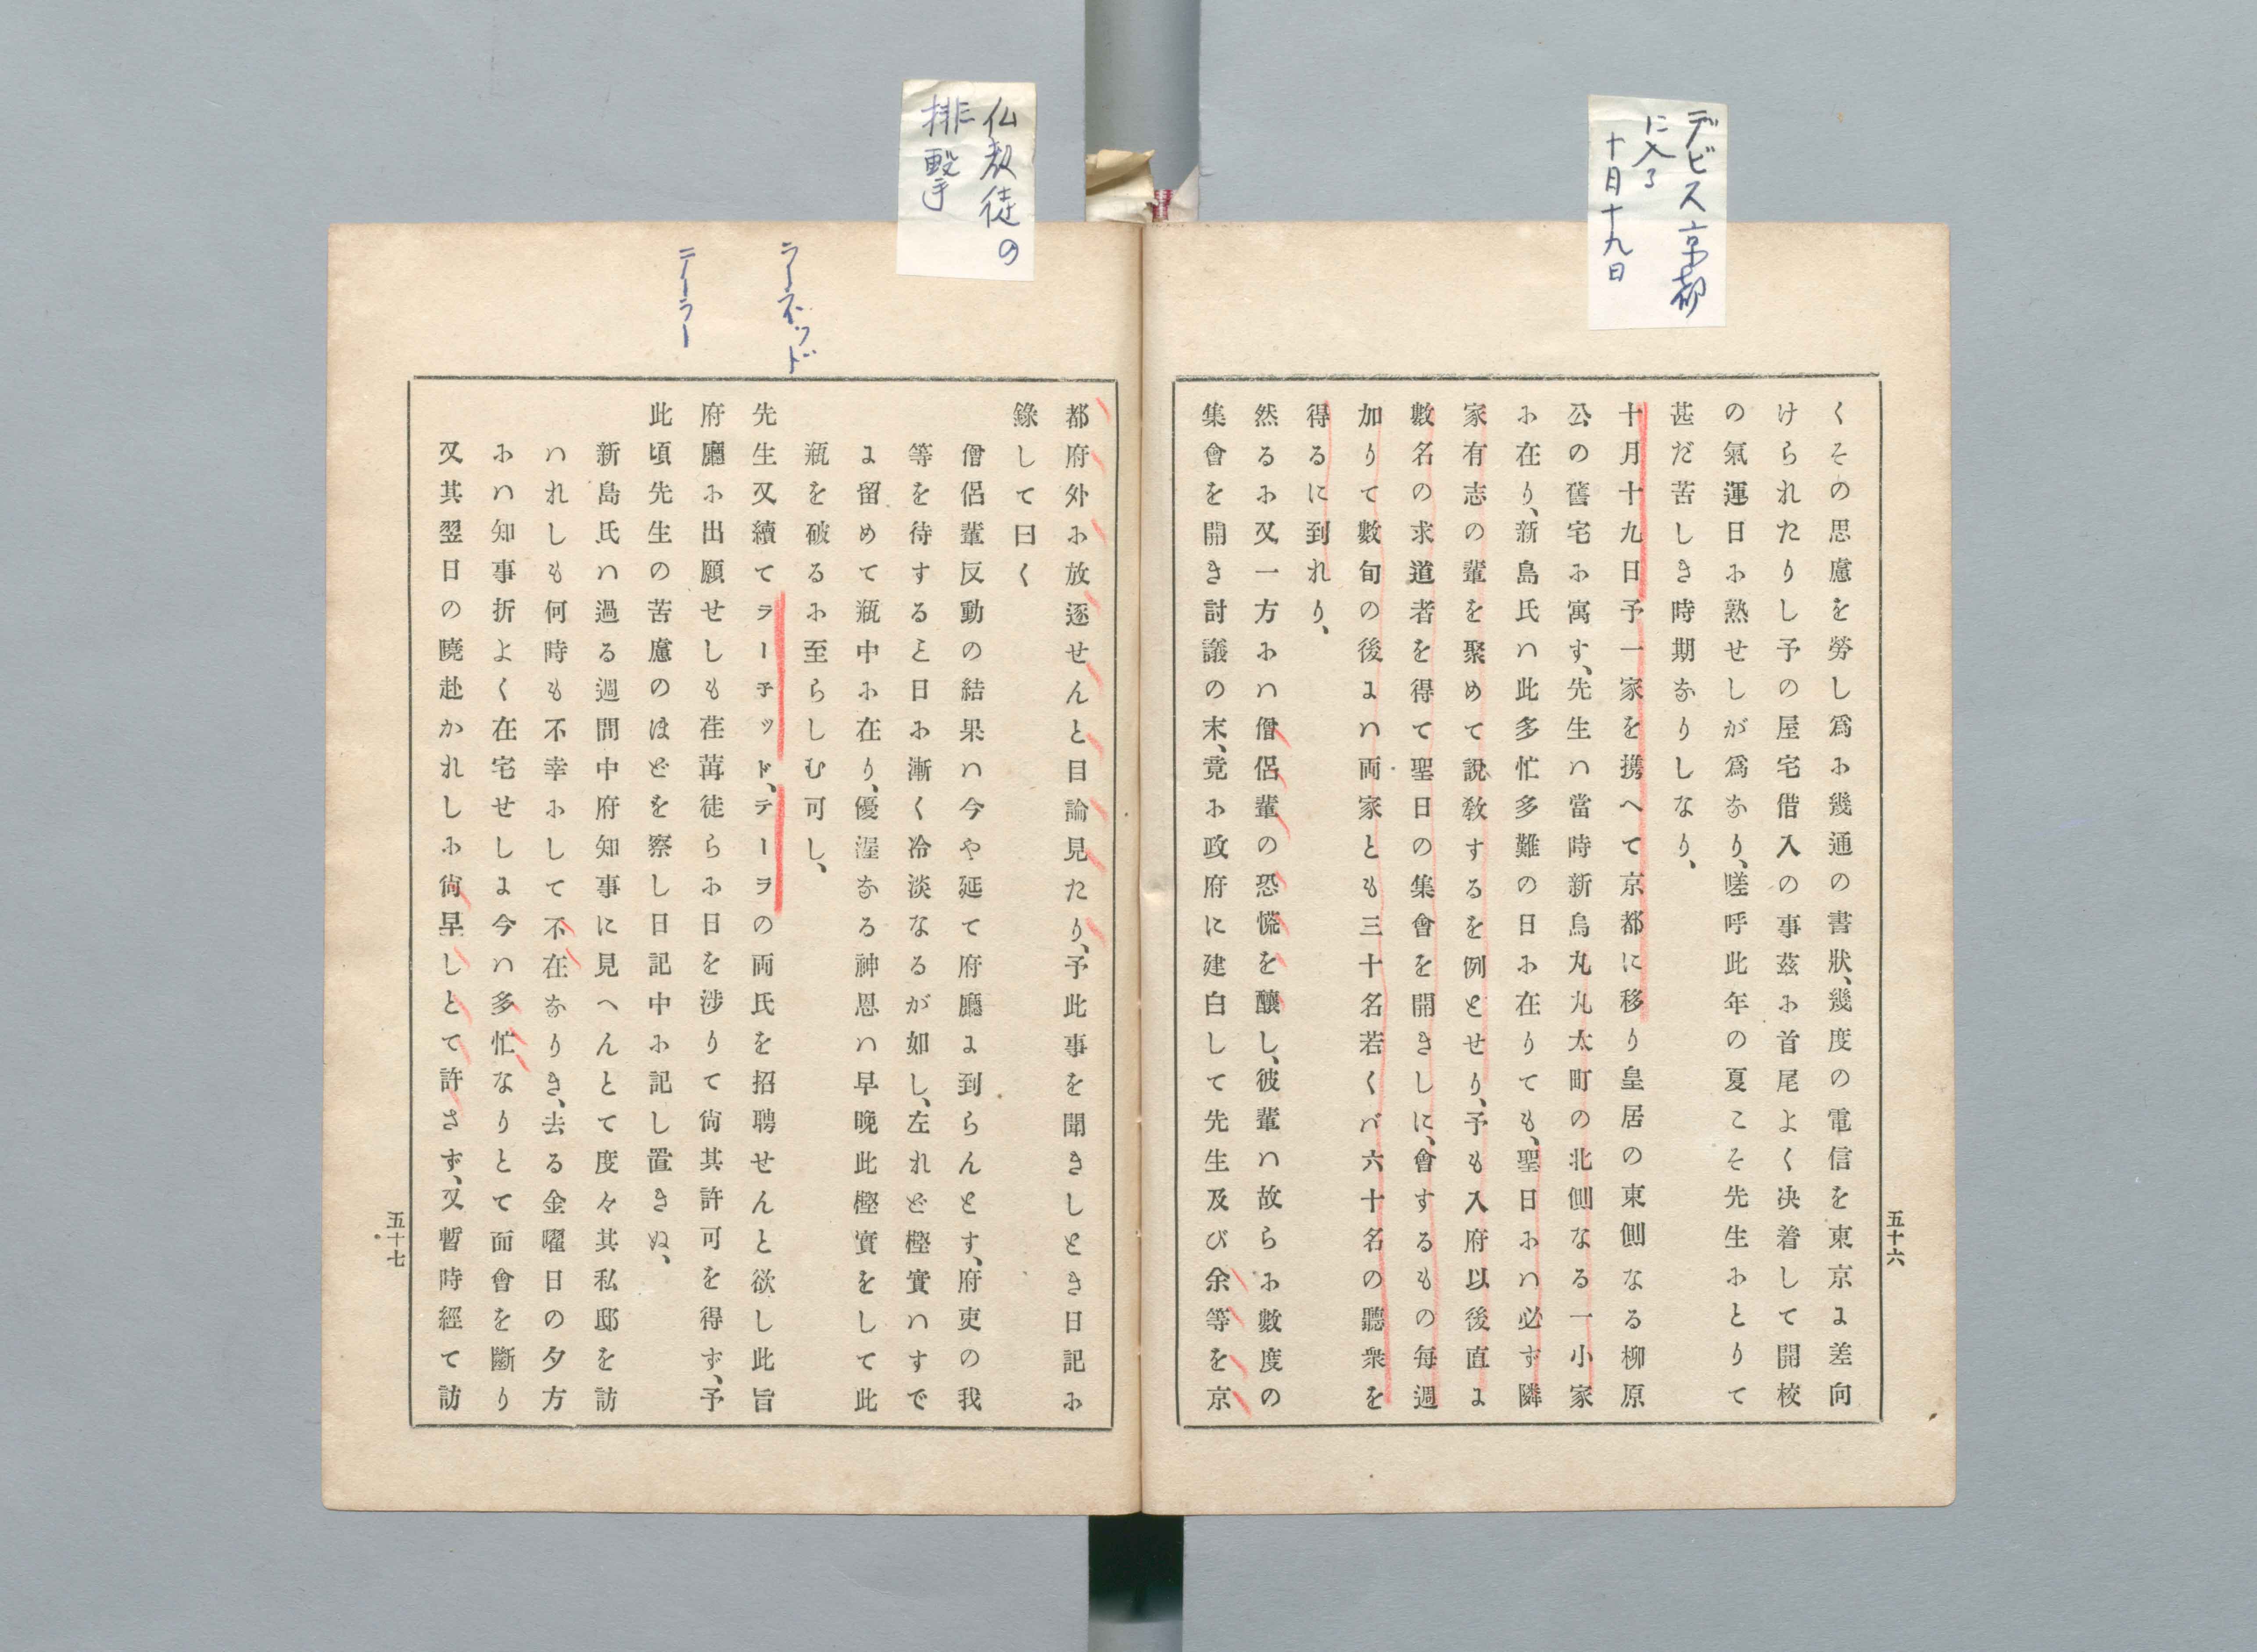 デビス京都
に入る
十月十九日
くその思慮を勞し爲に幾通の書狀、幾度の電信を東京に差向
けられたりし予の屋宅借入の事茲に首尾よく决着して開校
の氣運日に熟せしが爲なり、嗟呼此年の夏こそ先生にとりて
甚だ苦しき時期なりしなり、
十月十九日予一家を携へて京都に移り皇居の東側なる柳原
公の舊宅に寓す、先生ハ當時新烏丸丸太町の北側なる一小家
に在り、新島氏ハ此多忙多難の日に在りても、聖日にハ必ず隣
家有志の輩を聚めて說敎するを例とせり、予も入府以後直に
數名の求道者を得て聖日の集會を開きしに、會するもの每週
加りて數旬の後にハ両家とも三十名若くバ六十名の聽衆を
得るに到れり、
然るに又一方にハ僧侶輩の恐慌を釀し、彼輩ハ故らに數度の
集會を開き討議の末、竟に政府に建白して先生及び余等を京
五十六
仏教徒の
排擊
ラーネッド
テーラー
都府外に放逐せんと目論見たり、予此事を聞きしとき日記に
錄して曰く
僧侶輩反動の結果ハ今や延て府廳に到らんとす、府吏の我
等を待するこ日に漸く冷淡なるが如し、左れど樫實ハすで
に留めて瓶中に在り、優渥なる神恩ハ早晩此樫實をして此
瓶を破るに至らしむ可し、
先生又續てラー子ッド、テーラの両氏を招聘せんと欲し此旨
府廳に出願せしも荏苒徒らに日を涉りて尙其許可を得ず、予
此頃先生の苦慮のほどを察し日記中に記し置きぬ、
新島氏ハ過る週間中府知事に見へんとて度々其私邸を訪
ハれしも何時も不幸にして不在なりき、去る金曜日の夕方
にハ知事折よく在宅せしよ今ハ多忙なりとて面會を斷り
又其翌日の曉赴かれしに尙早しとて許さず、又暫時經て訪
五十七